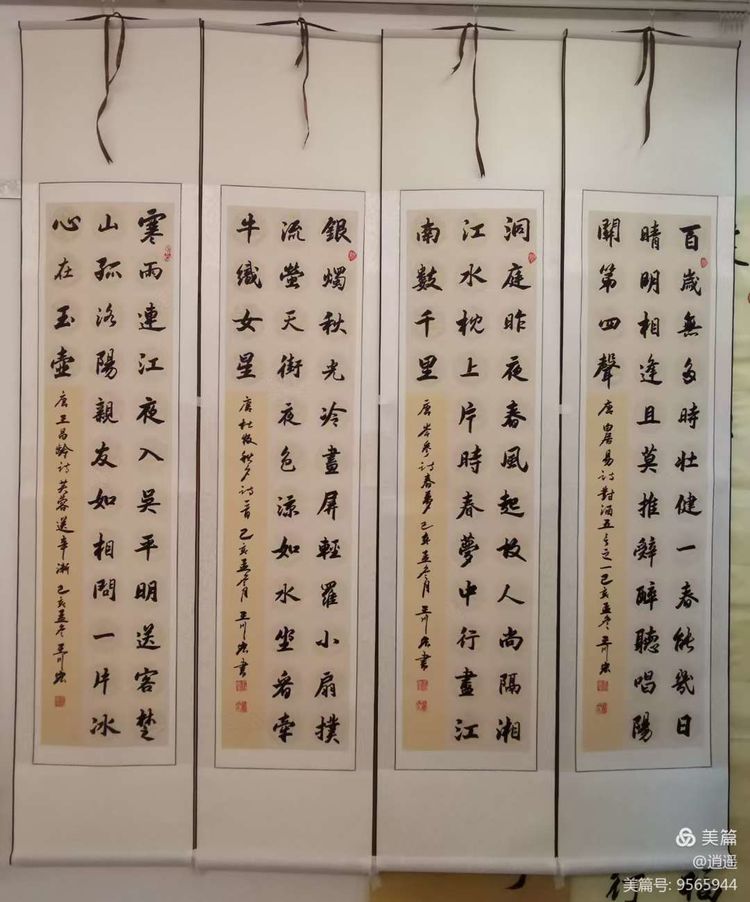 百歲無多時壯健一春能幾日
晴明相逢且莫推辭醉聽唱陽
關第四聲
唐白居易詩對酒五首之一己亥孟冬
洞庭昨夜春風起故人尚隔湘
江水枕上片時春夢中行盡江
南數千里
唐岑參詩春夢己亥孟冬月
銀燭秋光冷畫屏輕羅小扇撲
流螢天街夜色涼如水坐看牽
牛織女星
唐杜牧秋夕詩一首己亥孟冬月
寒雨連江夜入吳平明送客楚
山孤洛陽親友如相問一片冰
心在玉壺
唐王昌齡詩芙蓉送辛漸己亥孟冬
美篇
@逍遥
美篇号: 9565944